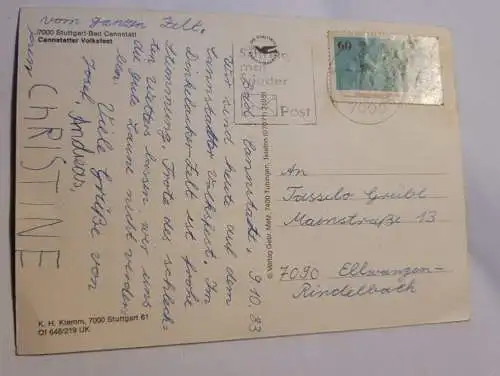 7000 Stuttgart-Bad Cannstatt
Cannstatter Volksfest
Bad Cannstatt, 9.10.83
Wir sind heute auf dem
Cannstadter Volksfest. Im
Dinkelacker Zelt ist frohe
Stimmung. Trotz des schlech-
ten Wetters lassen wir uns
die gute Laune nicht verder-
ben.
Viele Grüße von
Josef, Andreas,
CHRISTINE
vom ganzen Zelt,
K. H. Klemm, 7000 Stuttgart 61
Of 646/219 UK
© Verlag Gebr. Metz, 7400 Tübingen, Telefon
60
Post
7000
An
Tassilo Grübl
Mainstraße 13
7090 Ellwangen-
Rindelbach